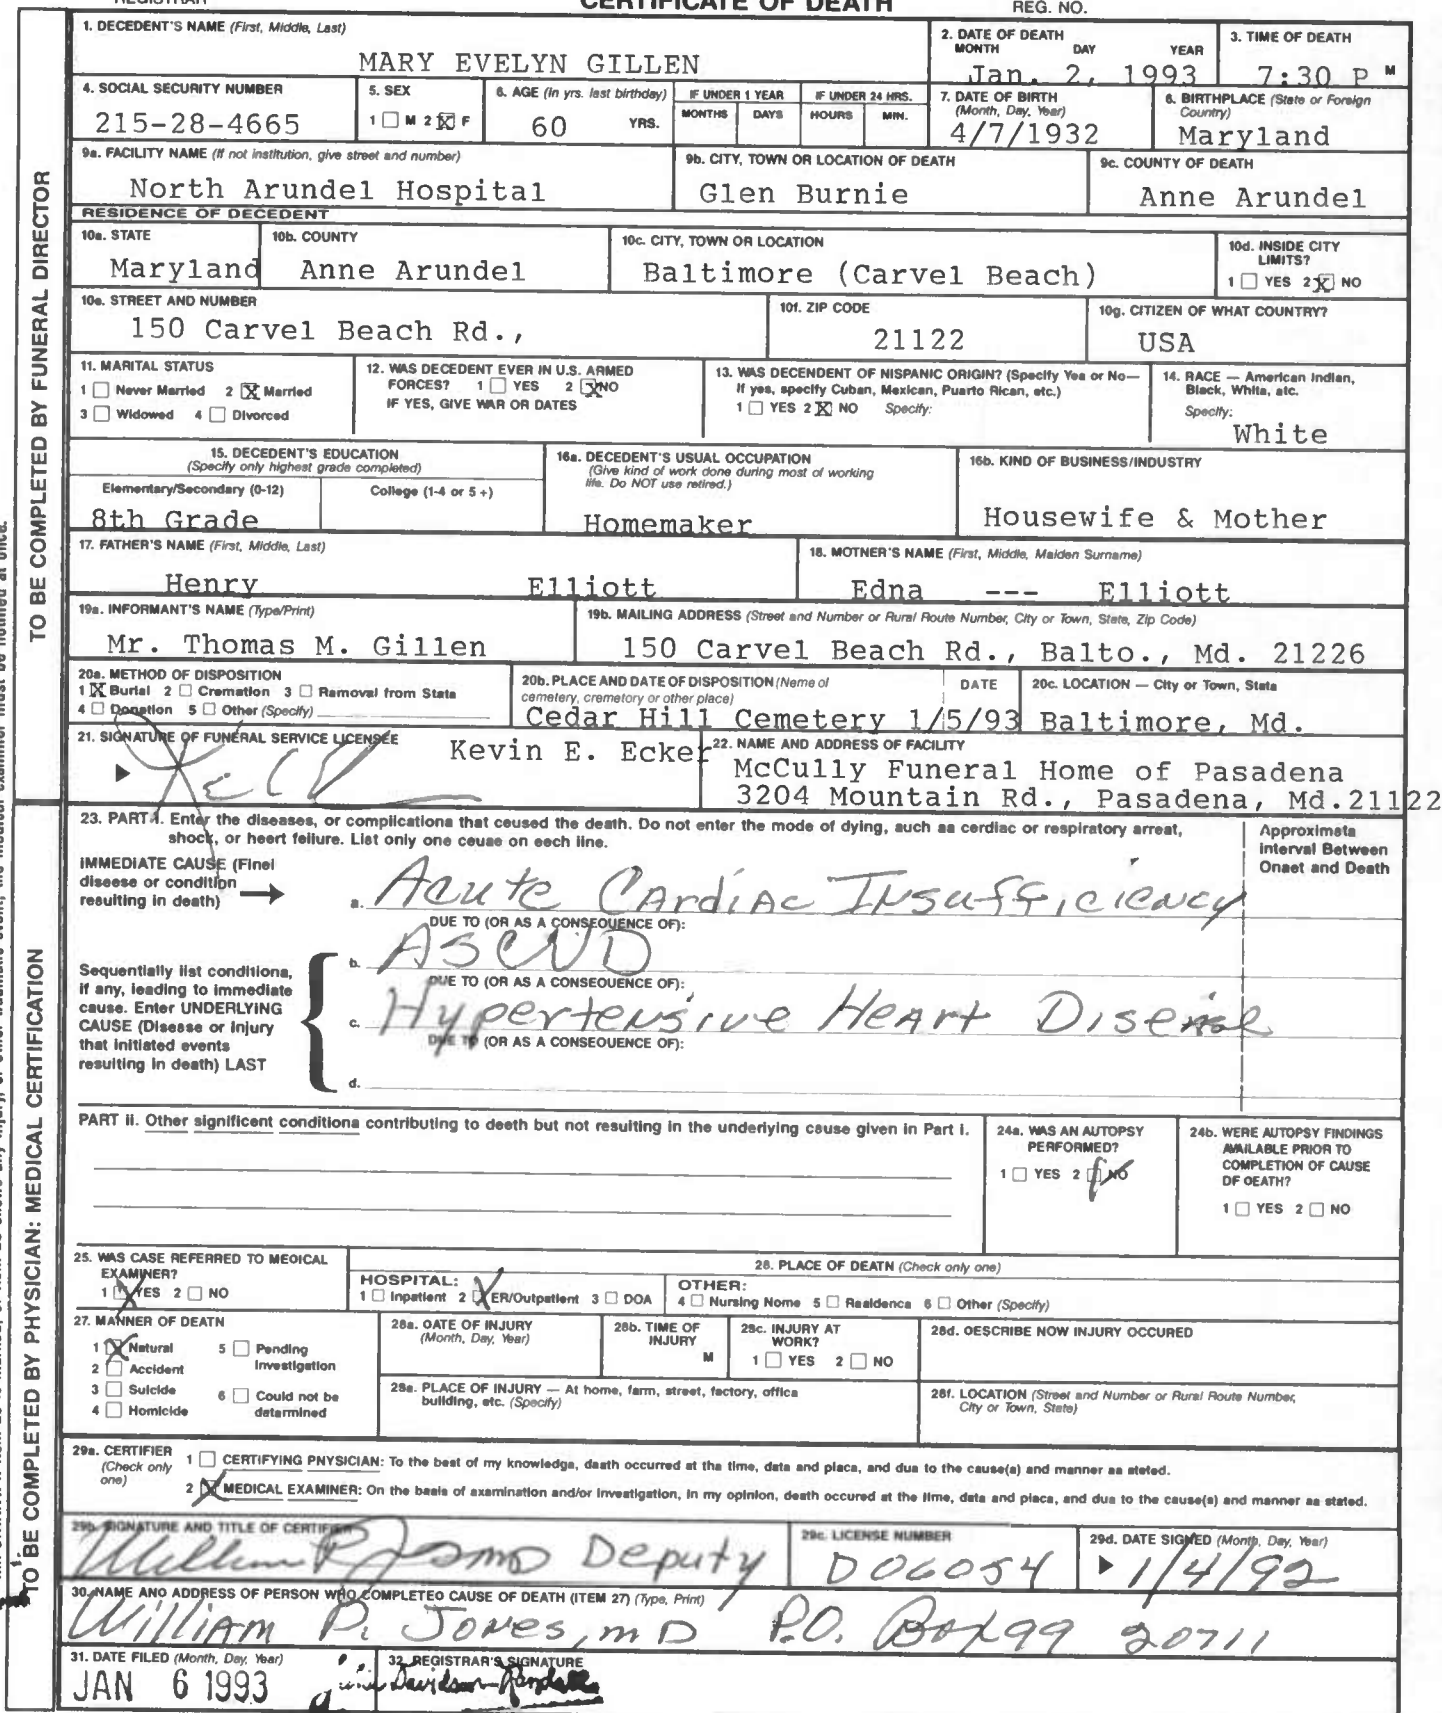 CERTIFICATE OF DEATH
REG. NO.
1. DECEDENT'S NAME (First, Middle, Last)
MARY EVELYN GILLEN
2. DATE OF DEATH
MONTH DAY YEAR
Jan. 2, 1993
3. TIME OF DEATH
7:30 P M
4. SOCIAL SECURITY NUMBER
215-28-4665
5. SEX
1 M 2 X F
6. AGE (In yrs. last birthday)
60 YRS.
IF UNDER 1 YEAR
MONTHS DAYS
IF UNDER 24 HRS.
HOURS MIN.
7. DATE OF BIRTH
(Month, Day, Year)
4/7/1932
6. BIRTHPLACE (State or Foreign
Country)
Maryland
9a. FACILITY NAME (If not institution, give street and number)
North Arundel Hospital
9b. CITY, TOWN OR LOCATION OF DEATH
Glen Burnie
9c. COUNTY OF DEATH
Anne Arundel
RESIDENCE OF DECEDENT
10a. STATE
Maryland
10b. COUNTY
Anne Arundel
10c. CITY, TOWN OR LOCATION
Baltimore (Carvel Beach)
10d. INSIDE CITY
LIMITS?
1 YES 2 X NO
10e. STREET AND NUMBER
150 Carvel Beach Rd.,
10f. ZIP CODE
21122
10g. CITIZEN OF WHAT COUNTRY?
USA
11. MARITAL STATUS
1 Never Married 2 X Married
3 Widowed 4 Divorced
12. WAS DECEDENT EVER IN U.S. ARMED
FORCES? 1 YES 2 X NO
IF YES, GIVE WAR OR DATES
13. WAS DECENDENT OF NISPANIC ORIGIN? (Specify Yes or No—
If yes, specify Cuban, Mexican, Puerto Rican, etc.)
1 YES 2 X NO Specify:
14. RACE — American Indian,
Black, White, etc.
Specify:
White
15. DECEDENT'S EDUCATION
(Specify only highest grade completed)
Elementary/Secondary (0-12)
College (1-4 or 5+)
8th Grade
16a. DECEDENT'S USUAL OCCUPATION
(Give kind of work done during most of working
life. Do NOT use retired.)
Homemaker
16b. KIND OF BUSINESS/INDUSTRY
Housewife & Mother
17. FATHER'S NAME (First, Middle, Last)
Henry Elliott
18. MOTNER'S NAME (First, Middle, Maiden Surname)
Edna --- Elliott
19a. INFORMANT'S NAME (Type/Print)
Mr. Thomas M. Gillen
19b. MAILING ADDRESS (Street and Number or Rural Route Number, City or Town, State, Zip Code)
150 Carvel Beach Rd., Balto., Md. 21226
20a. METHOD OF DISPOSITION
1 X Burial 2 Cremation 3 Ramoval from Stata
4 Donation 5 Other (Specify)
20b. PLACE AND DATE OF DISPOSITION (Neme of
cemetery, cremetory or other place)
DATE
Cedar Hill Cemetery 1/5/93
20c. LOCATION — City or Town, Stata
Baltimore, Md.
21. SIGNATURE OF FUNERAL SERVICE LICENSEE
Kevin E. Ecker
22. NAME AND ADDRESS OF FACILITY
McCully Funeral Home of Pasadena
3204 Mountain Rd., Pasadena, Md.21122
TO BE COMPLETED BY FUNERAL DIRECTOR
23. PART I. Enter the diseases, or complicationa that ceused the death. Do not enter the mode of dying, auch aa cerdiac or respiratory arreat,
shock, or heert feilure. List only one ceuae on eech line.
Approximeta
interval Between
Onaet and Death
IMMEDIATE CAUSE (Finel
diseese or condition
resulting in death)
a. Acute Cardiac Insufficiency
DUE TO (OR AS A CONSEQUENCE OF):
b. ASCVD
DUE TO (OR AS A CONSEOUENCE OF):
Sequentially list conditiona,
if any, leading to immediate
cause. Enter UNDERLYING
CAUSE (Disease or injury
that initiated events
resulting in death) LAST
c. Hypertensive Heart Disease
DUE TO (OR AS A CONSEOUENCE OF):
d.
PART II. Other significent conditiona contributing to deeth but not resulting in the underlying cause given in Part I.
24a. WAS AN AUTOPSY
PERFORMED?
1 YES 2 NO
24b. WERE AUTOPSY FINDINGS
AVAILABLE PRIOR TO
COMPLETION OF CAUSE
DF OEATH?
1 YES 2 NO
25. WAS CASE REFERRED TO MEDICAL
EXAMINER?
1 X YES 2 NO
26. PLACE OF DEATH (Check only one)
HOSPITAL:
1 Inpatient 2 X ER/Outpatient 3 DOA
OTHER:
4 Nursing Nome 5 Raaldenca 6 Other (Specify)
27. MANNER OF DEATH
1 X Natural 5 Pending
Investigation
2 Accident
3 Suicide 6 Could not be
determined
4 Homicide
28a. OATE OF INJURY
(Month, Day, Year)
28b. TIME OF
INJURY
M
28c. INJURY AT
WORK?
1 YES 2 NO
28d. OESCRIBE NOW INJURY OCCURED
28e. PLACE OF INJURY — At home, farm, street, factory, offica
building, etc. (Specify)
28f. LOCATION (Street and Number or Rural Route Number,
City or Town, State)
29a. CERTIFIER
(Check only
one)
1 CERTIFYING PNYSICIAN: To the beat of my knowledga, daath occurred at tha time, data and placa, and dua to the cause(a) and manner aa ateted.
2 X MEDICAL EXAMINER: On the basis of axamination and/or Investigation, in my opinion, death occured at the lime, data and placa, and due to the cause(s) and manner aa stated.
29b. SIGNATURE AND TITLE OF CERTIFIER
William P. Jones MD Deputy
29c. LICENSE NUMBER
D06054
29d. DATE SIGNED (Month, Day, Year)
1/4/92
30. NAME ANO ADDRESS OF PERSON WHO COMPLETEO CAUSE OF DEATH (ITEM 27) (Type, Print)
William P. Jones, MD P.O. Box 99 20711
31. DATE FILED (Month, Day, Year)
JAN 6 1993
32. REGISTRAR'S SIGNATURE
Davidson-Randall
TO BE COMPLETED BY PHYSICIAN: MEDICAL CERTIFICATION